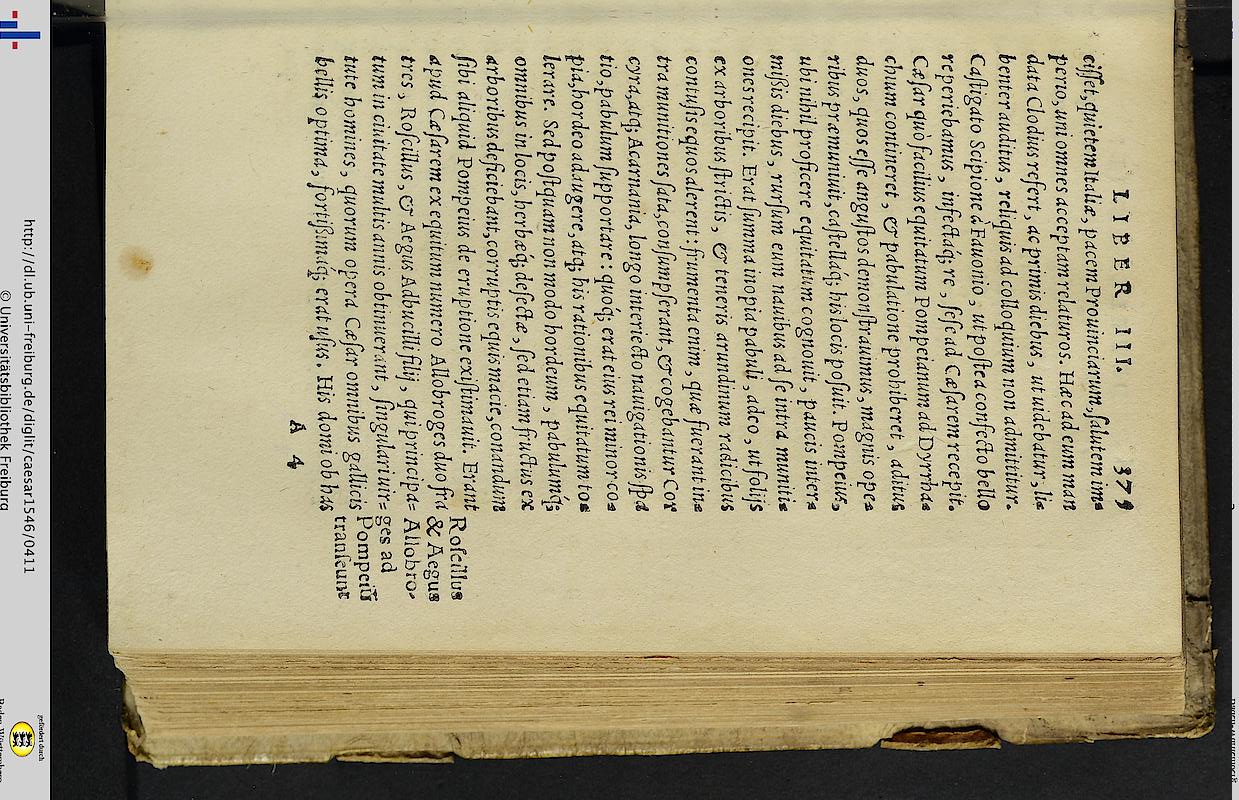 LIBER III. 375
eiſſet, quietem Italiæ, pacem Prouinciarum, ſalutem im=
perio, uni omnes acceptam relaturos. Hæc ad eum man
data Clodius refert, ac primis diebus, ut uidebatur, li=
benter auditus, reliquis ad colloquium non admittitur.
Caſtigato Scipione à Fauonio, ut poſtea confecto bello
reperiebamus, infectaq́; re, ſeſe ad Cæſarem recepit.
Cæſar quò facilius equitatum Pompeianum ad Dyrrha=
chium contineret, & pabulatione prohiberet, aditus
duos, quos eſſe anguſtos demonſtrauimus, magnis ope=
ribus præmuniuit, caſtellaq́; his locis poſuit. Pompeius,
ubi nihil proficere equitatum cognouit, paucis inter=
mißis diebus, rurſum eum nauibus ad ſe intra munitio=
ones recipit. Erat ſumma inopia pabuli, adeo, ut folijs
ex arboribus ſtrictis, & teneris arundinum radicibus
contuſis equos alerent: frumenta enim, quæ fuerant in=
tra munitiones ſata, conſumpſerant, & cogebantur Cor
cyra, atq; Acarnania, longo interiecto nauigationis ſpa
tio, pabulum ſupportare: quoq́; erat eius rei minor co=
pia, hordeo adaugere, atq; his rationibus equitatum to=
lerare. Sed poſtquam non modo hordeum, pabulumq́;
omnibus in locis, herbæq́; deſectæ, ſed etiam fructus ex
arboribus deficiebant, corruptis equis macie, conandum
ſibi aliquid Pompeius de eruptione exiſtimauit. Erant
apud Cæſarem ex equitum numero Allobroges duo fra
tres, Roſcillus, & Aegus Adbucilli filij, qui principa=
tum in ciuitate multis annis obtinuerant, ſingulari uir=
tute homines, quorum opera Cæſar omnibus gallicis
bellis optima, fortißimaq́; erat uſus. His domi ob has
Roſcillus
& Aegus
Allobro-
ges ad
Pompeiū
tranſeunt
A 4
http://dl.ub.uni-freiburg.de/diglit/caesar1546/0411
© Universitätsbibliothek Freiburg
gefördert durch